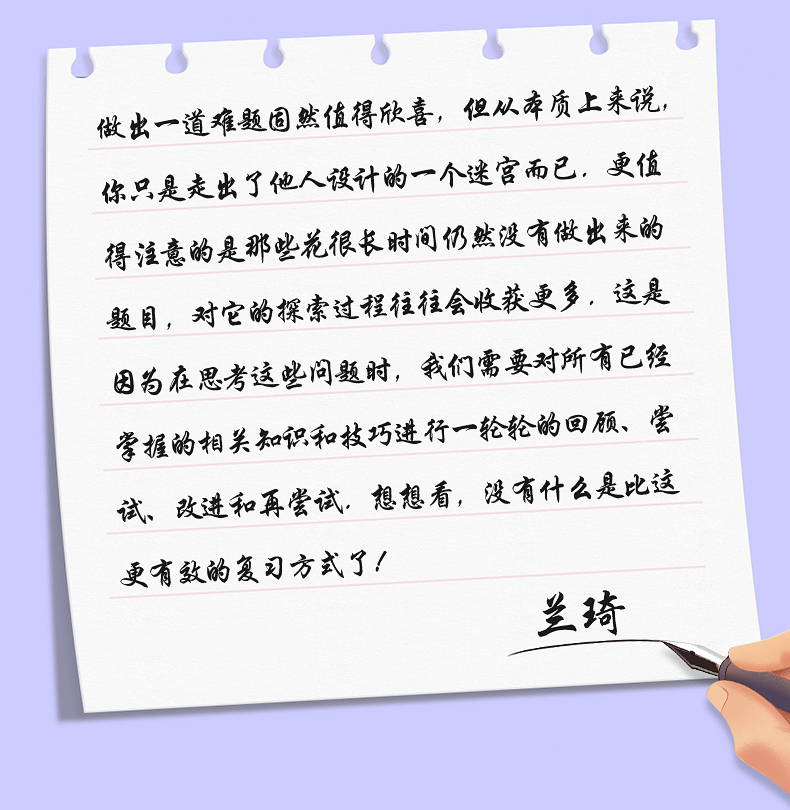 做出一道难题固然值得欣喜，但从本质上来说，
你只是走出了他人设计的一个迷宫而已．更值
得注意的是那些花很长时间仍然没有做出来的
题目，对它的探索过程往往会收获更多．这是
因为在思考这些问题时，我们需要对所有已经
掌握的相关知识和技巧进行一轮轮的回顾、尝
试、改进和再尝试．想想看，没有什么是比这
更有效的复习方式了！
兰琦